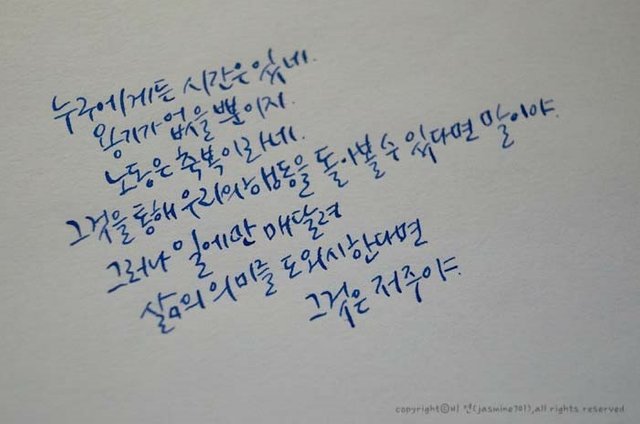 누구에게든 시간은 있네.
용기가 없을 뿐이지.
노동은 축복이라네.
그것을 통해 우리의 행동을 돌아볼 수 있다면 말이야.
그러나 일에만 매달려
삶의 의미를 도외시한다면
그것은 저주야.
copyrightⓒ비 연(jasmine701),all rights reserved